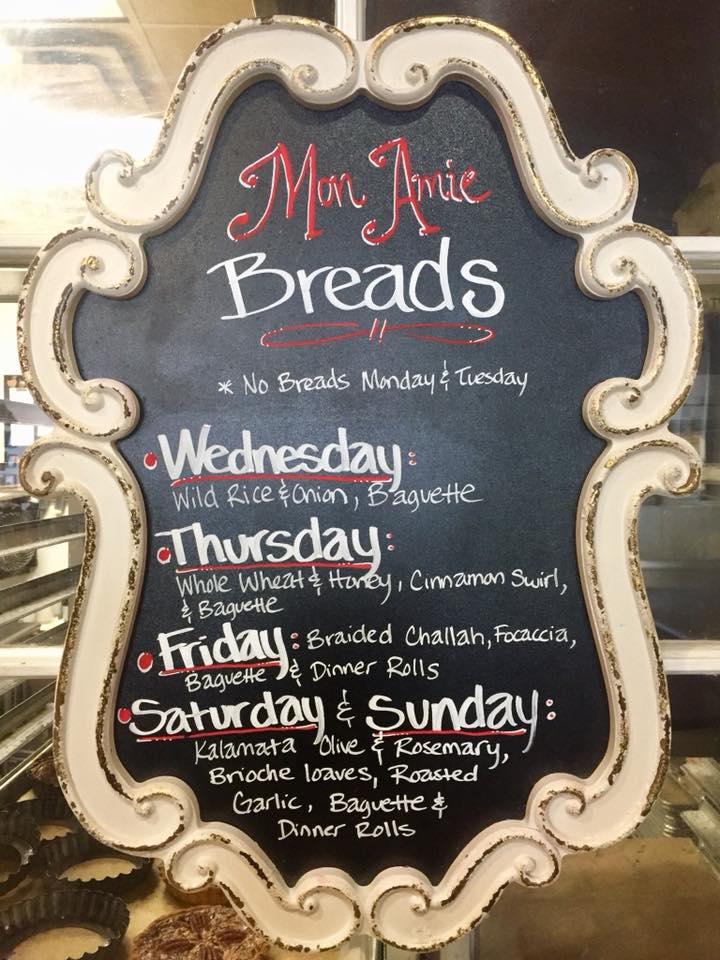 Mon Amie
Breads
* No Breads Monday & Tuesday
• Wednesday:
Wild Rice & Onion, Baguette
• Thursday:
Whole Wheat & Honey, Cinnamon Swirl,
& Baguette
• Friday: Braided Challah, Focaccia,
Baguette & Dinner Rolls
• Saturday & Sunday:
Kalamata Olive & Rosemary,
Brioche loaves, Roasted
Garlic, Baguette &
Dinner Rolls